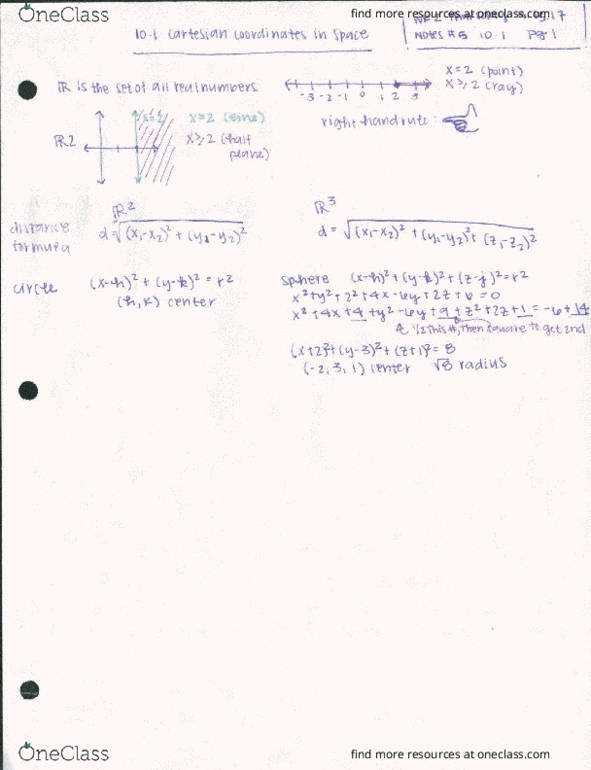 OneClass
find more resources at oneclass.com
10.1 Cartesian Coordinates in Space
Notes #5 10.1 Pg 1
ℝ is the set of all real numbers
-3 -2 -1 0 1 2 3
x=2 (point)
x≥2 (ray)
right hand rule:
ℝ2
x=2
x=2 (line)
x≥2 (half plane)
ℝ²
ℝ³
distance formula
d=√(x₁-x₂)² + (y₁-y₂)²
d = √(x₁-x₂)² + (y₁-y₂)² + (z₁-z₂)²
circle
(x-h)² + (y-k)² = r²
(h,k) center
sphere (x-h)² + (y-k)² + (z-j)² = r²
x² + y² + z² + 4x - 6y + 2z + 6 = 0
x² + 4x + 4 + y² - 6y + 9 + z² + 2z + 1 = -6 + 14
1/2 this #, then square to get 2nd
(x+2)² + (y-3)² + (z+1)² = 8
(-2, 3, 1) center √8 radius
OneClass
find more resources at oneclass.com